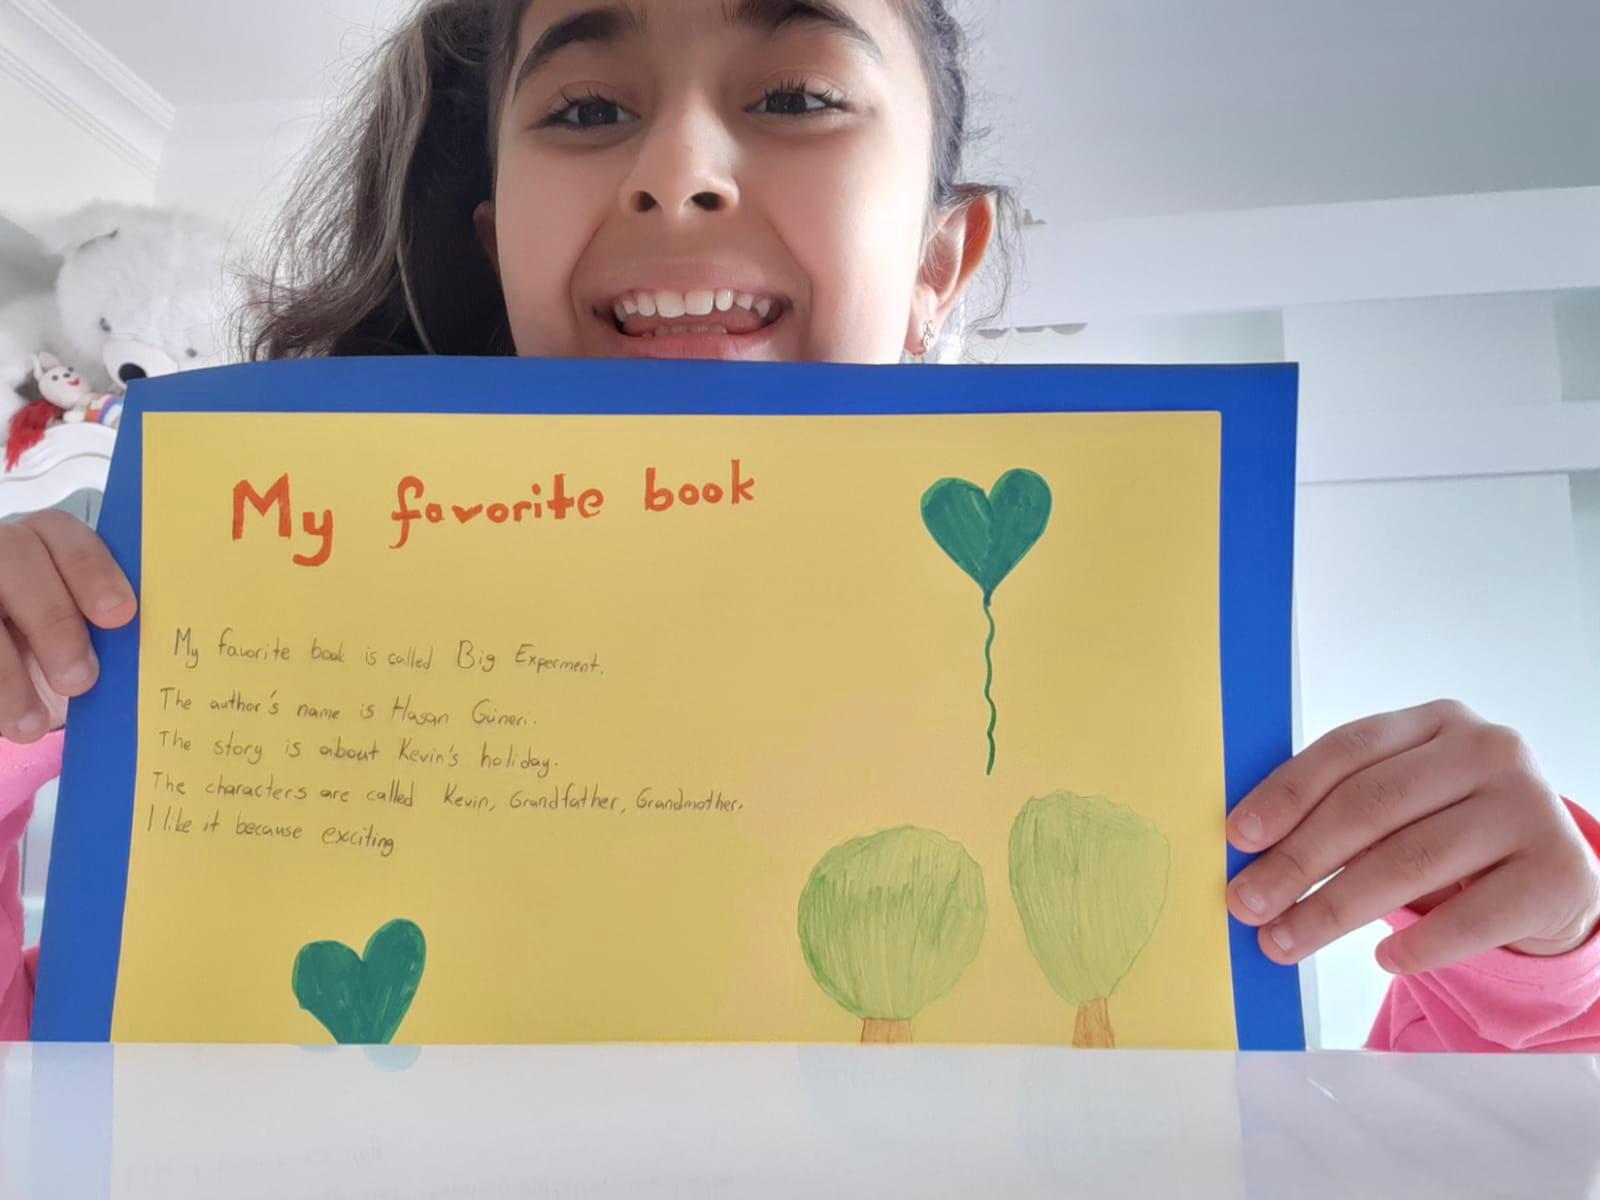 My favorite book
My favorite book is called Big Experment.
The author's name is Hasan Güneri.
The story is about Kevin's holiday.
The characters are called Kevin, Grandfather, Grandmother.
I like it because exciting